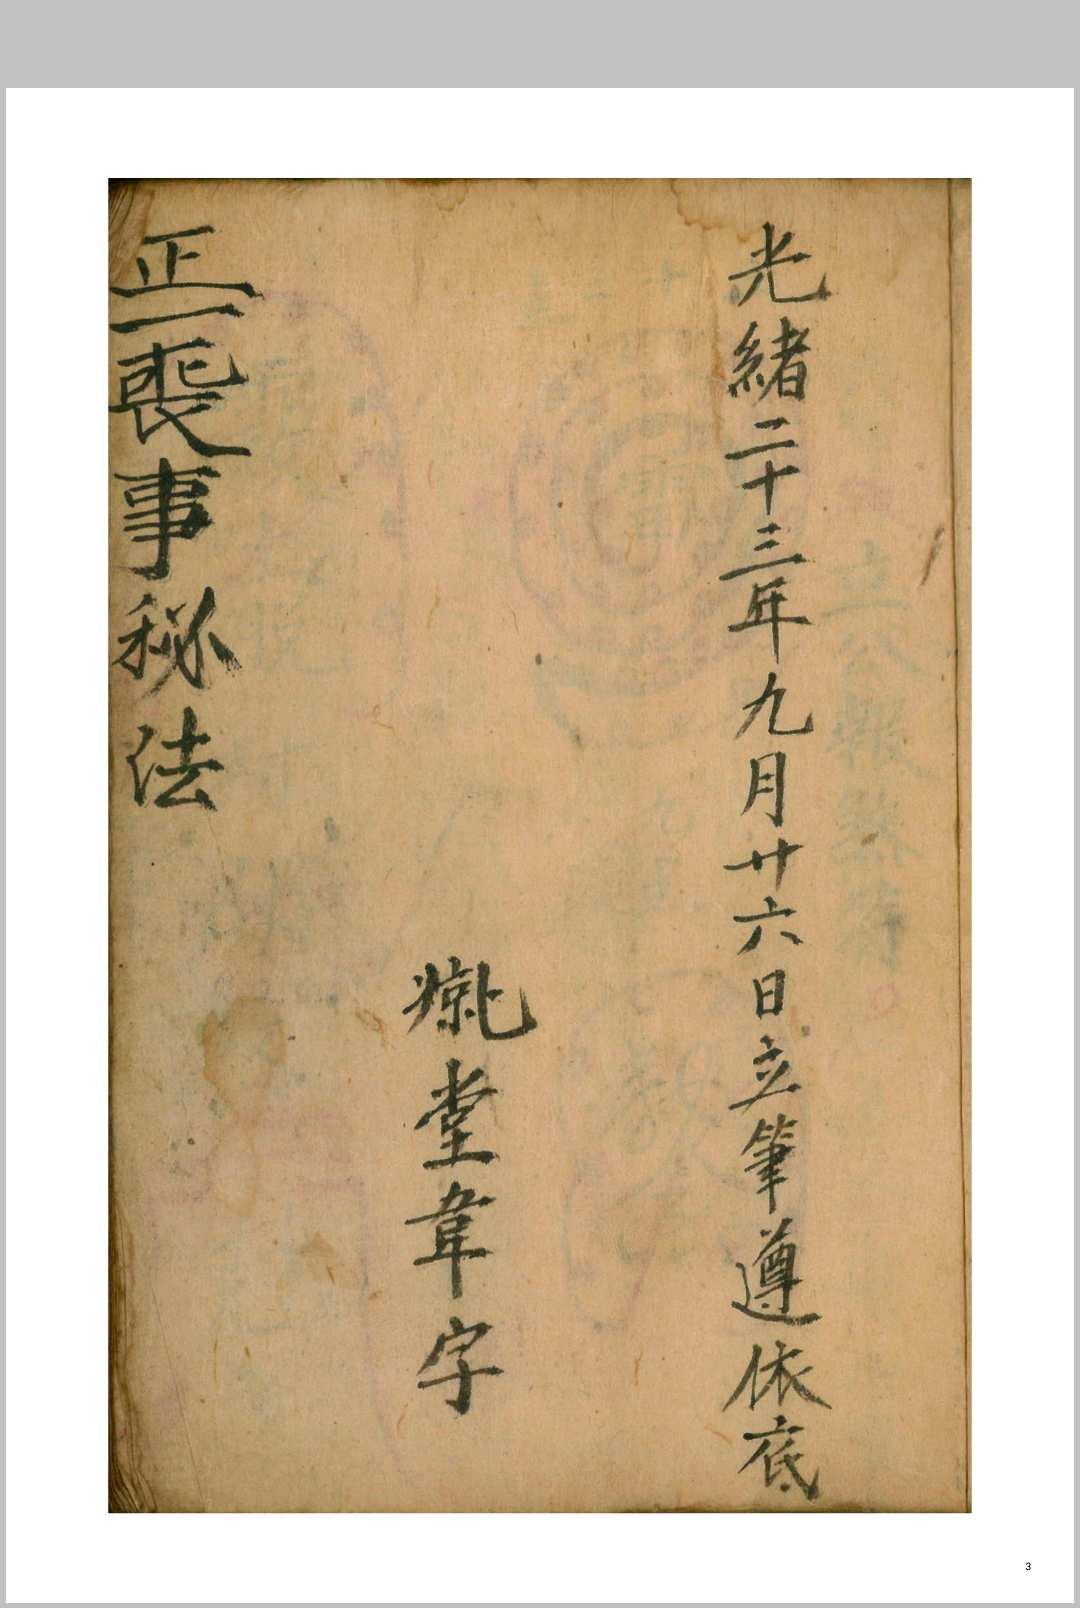 光緒二十三年九月廿六日立筆遵依底
堂韋字
正一喪事秘法
3